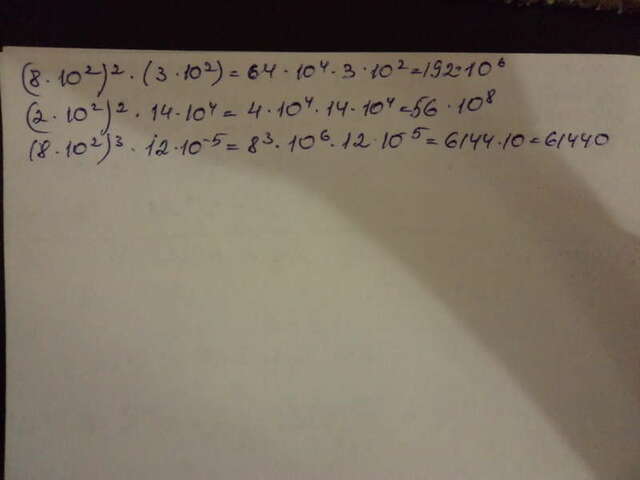 (8·10²)²·(3·10²)=64·10⁴·3·10²=192·10⁶
(2·10²)²·14·10⁴=4·10⁴·14·10⁴=56·10⁸
(8·10²)³·12·10⁻⁵=8³·10⁶·12·10⁻⁵=6144·10=61440